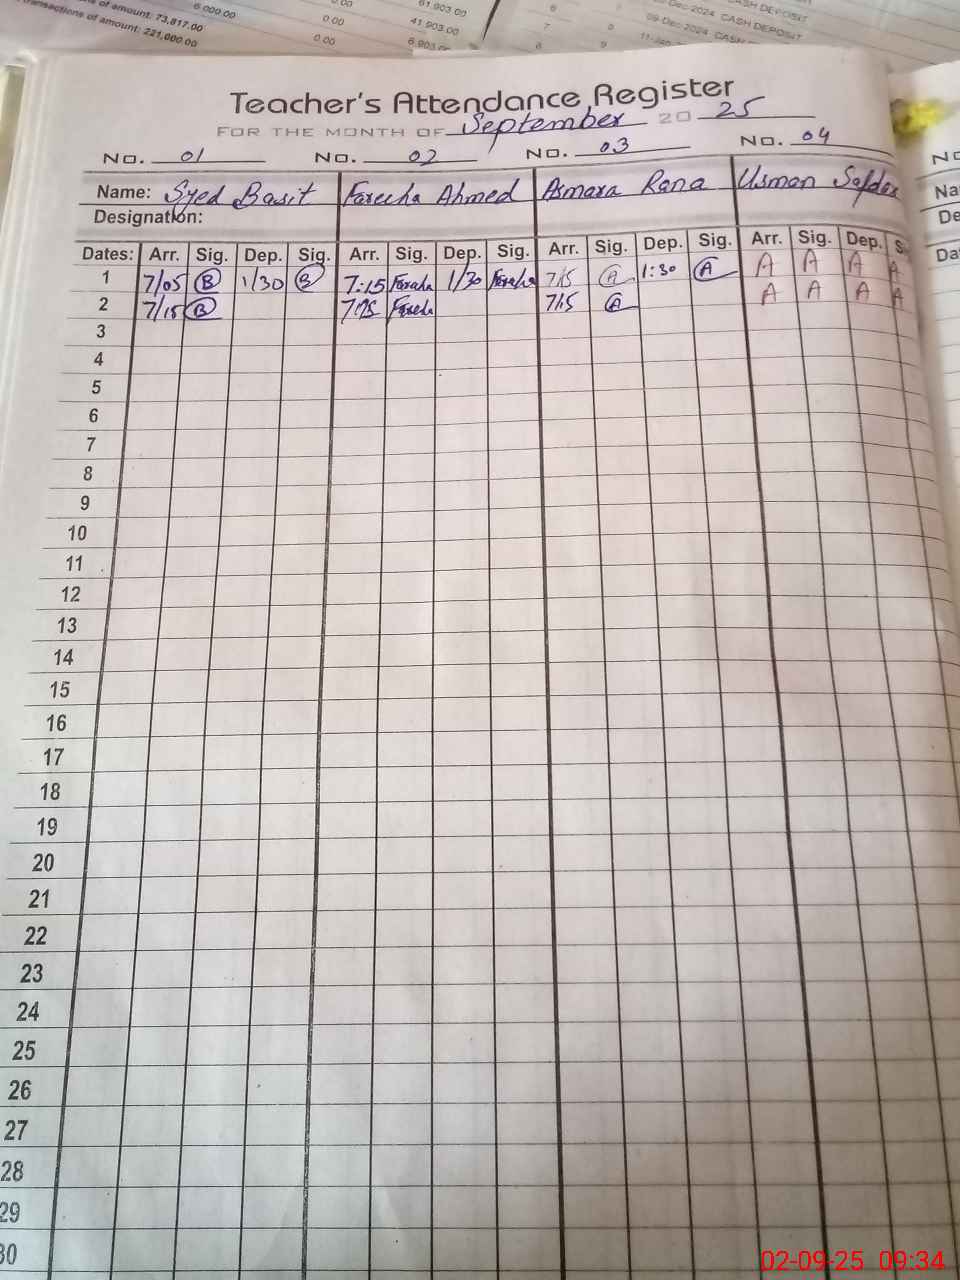 ransactions of amount: 73,817.00 6 000.00 0.00 61 903 00
of amount: 221,000.00 0.00 0.00 41 903.00
0.00 6 903 00
6 7 CASH DEPOSIT
7 8 09-Dec-2024 CASH DEPOSIT
8 9
Teacher's Attendance Register
FOR THE MONTH OF September 20 25
No. 01 No. 02 No. 03 No. 04
Name: Syed Basit Fareeha Ahmed Asmara Rana Usman Safdar
Designation:
Dates: Arr. Sig. Dep. Sig. Arr. Sig. Dep. Sig. Arr. Sig. Dep. Sig. Arr. Sig. Dep. S
1 7/05 B 1/30 B 7:15 Fareeha 1/30 Fareeha 7/15 A 1:30 A A A A A
2 7/15 B 7:15 Fareeha 7/15 A A A A A
3
4
5
6
7
8
9
10
11
12
13
14
15
16
17
18
19
20
21
22
23
24
25
26
27
28
29
30
No
Na
De
Da
02-09-25 09:34